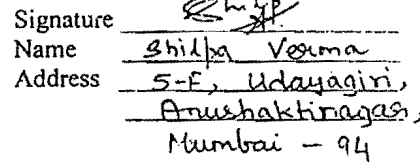 Signature
Name Shilpa Verma
Address 5-E, Udayagiri,
Anushaktinagar,
Mumbai - 94